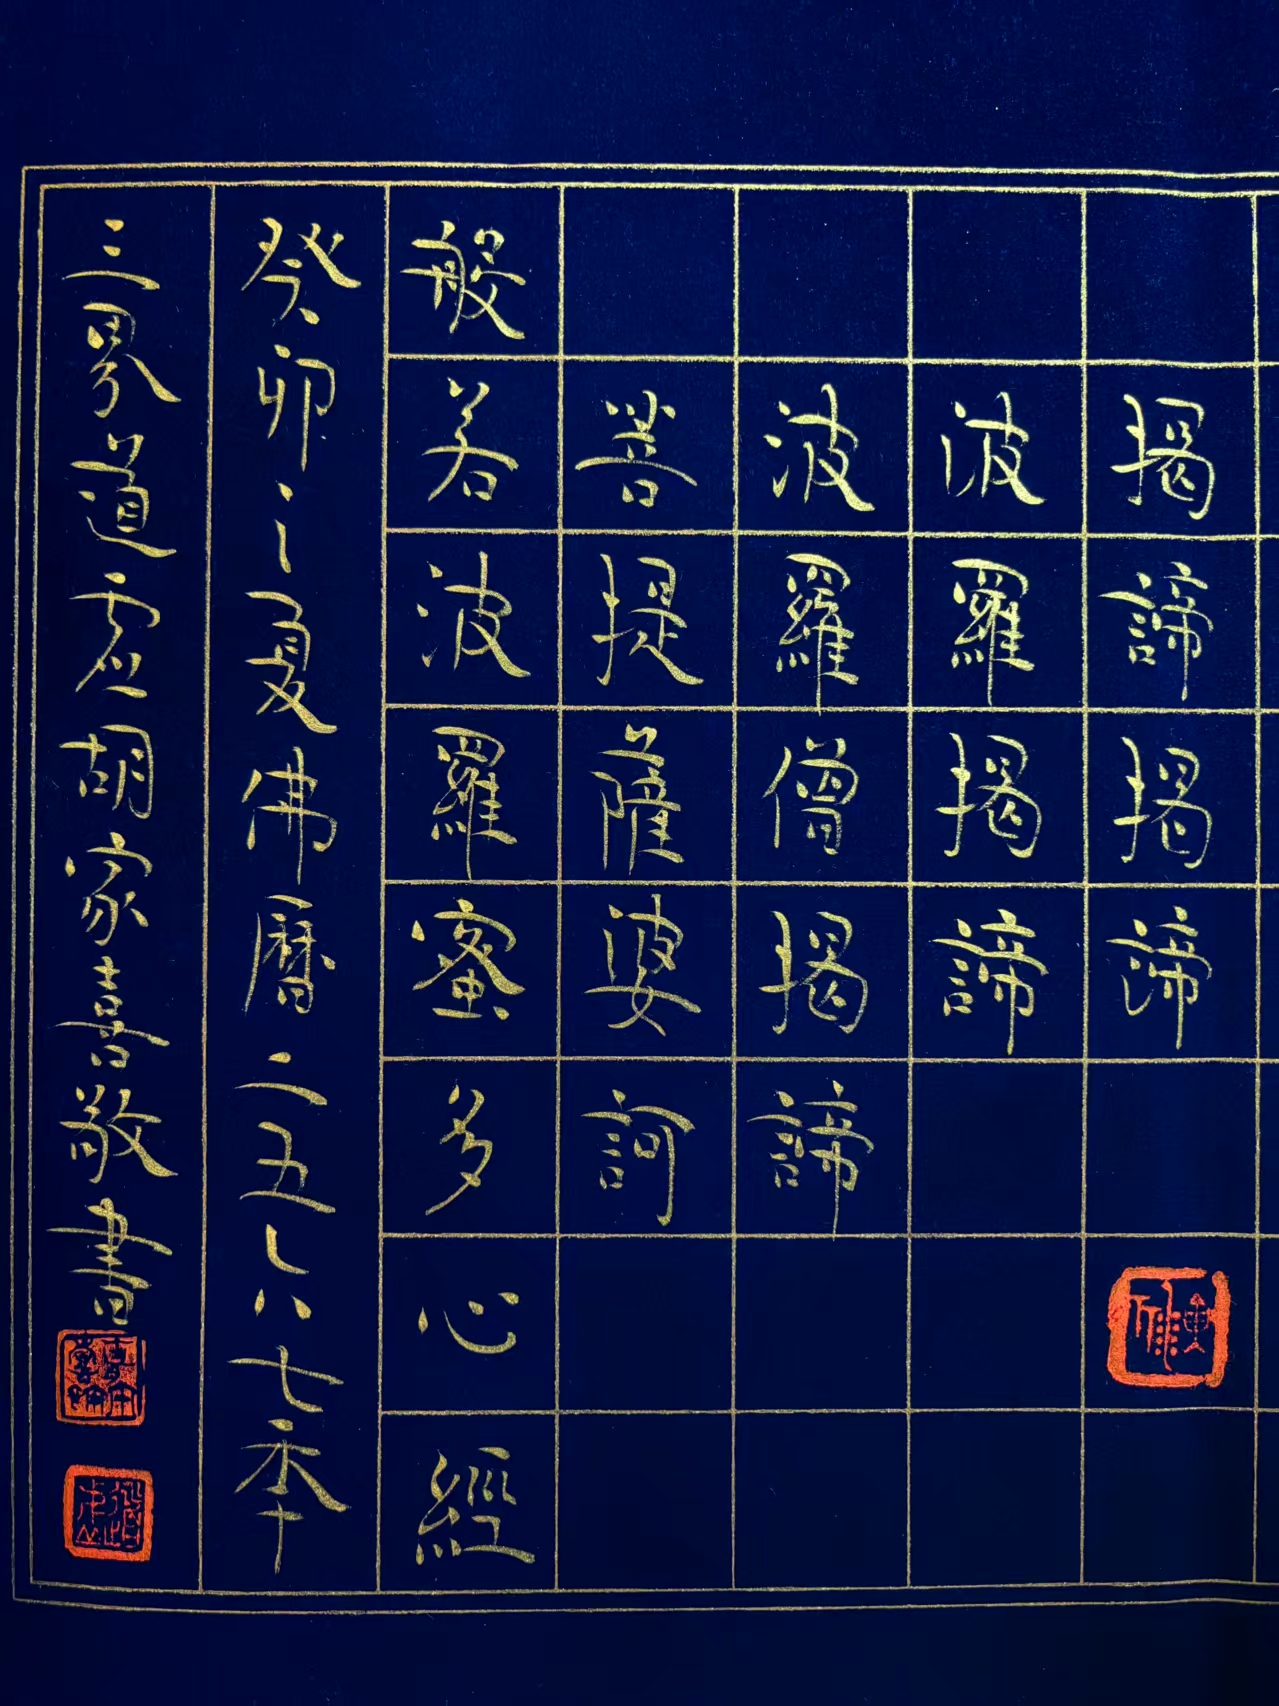 揭諦揭諦
波羅揭諦
波羅僧揭諦
菩提薩婆訶
般若波羅蜜多心經
癸卯之夏佛曆二五六七秊
三界道虛胡家喜敬書